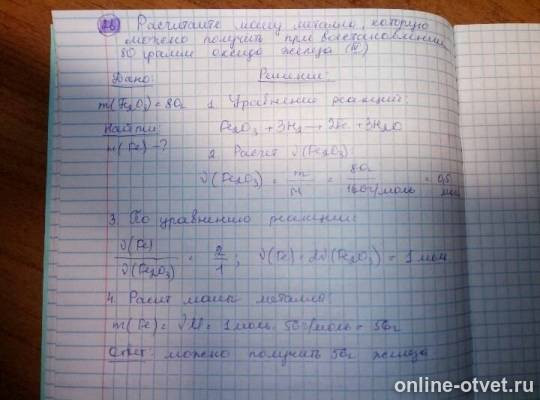 26 Расчитайте массу металла, которую
можно получить при восстановлении
80 грамм оксида железа (III)
Дано:
Решение:
m(Fe₂O₃) = 80г
1. Уравнение реакций:
Найти:
Fe₂O₃ + 3H₂ → 2Fe + 3H₂O
m(Fe) - ?
2. Расчёт ν(Fe₂O₃):
ν(Fe₂O₃) = m/M = 80г/160г/моль = 0,5 моль
3. По уравнению реакции:
ν(Fe)/ν(Fe₂O₃) = 2/1; ν(Fe) = 2ν(Fe₂O₃) = 1 моль
4. Расчёт массы металла:
m(Fe) = νM = 1моль · 56г/моль = 56г
Ответ: можно получить 56г железа
online-otvet.ru